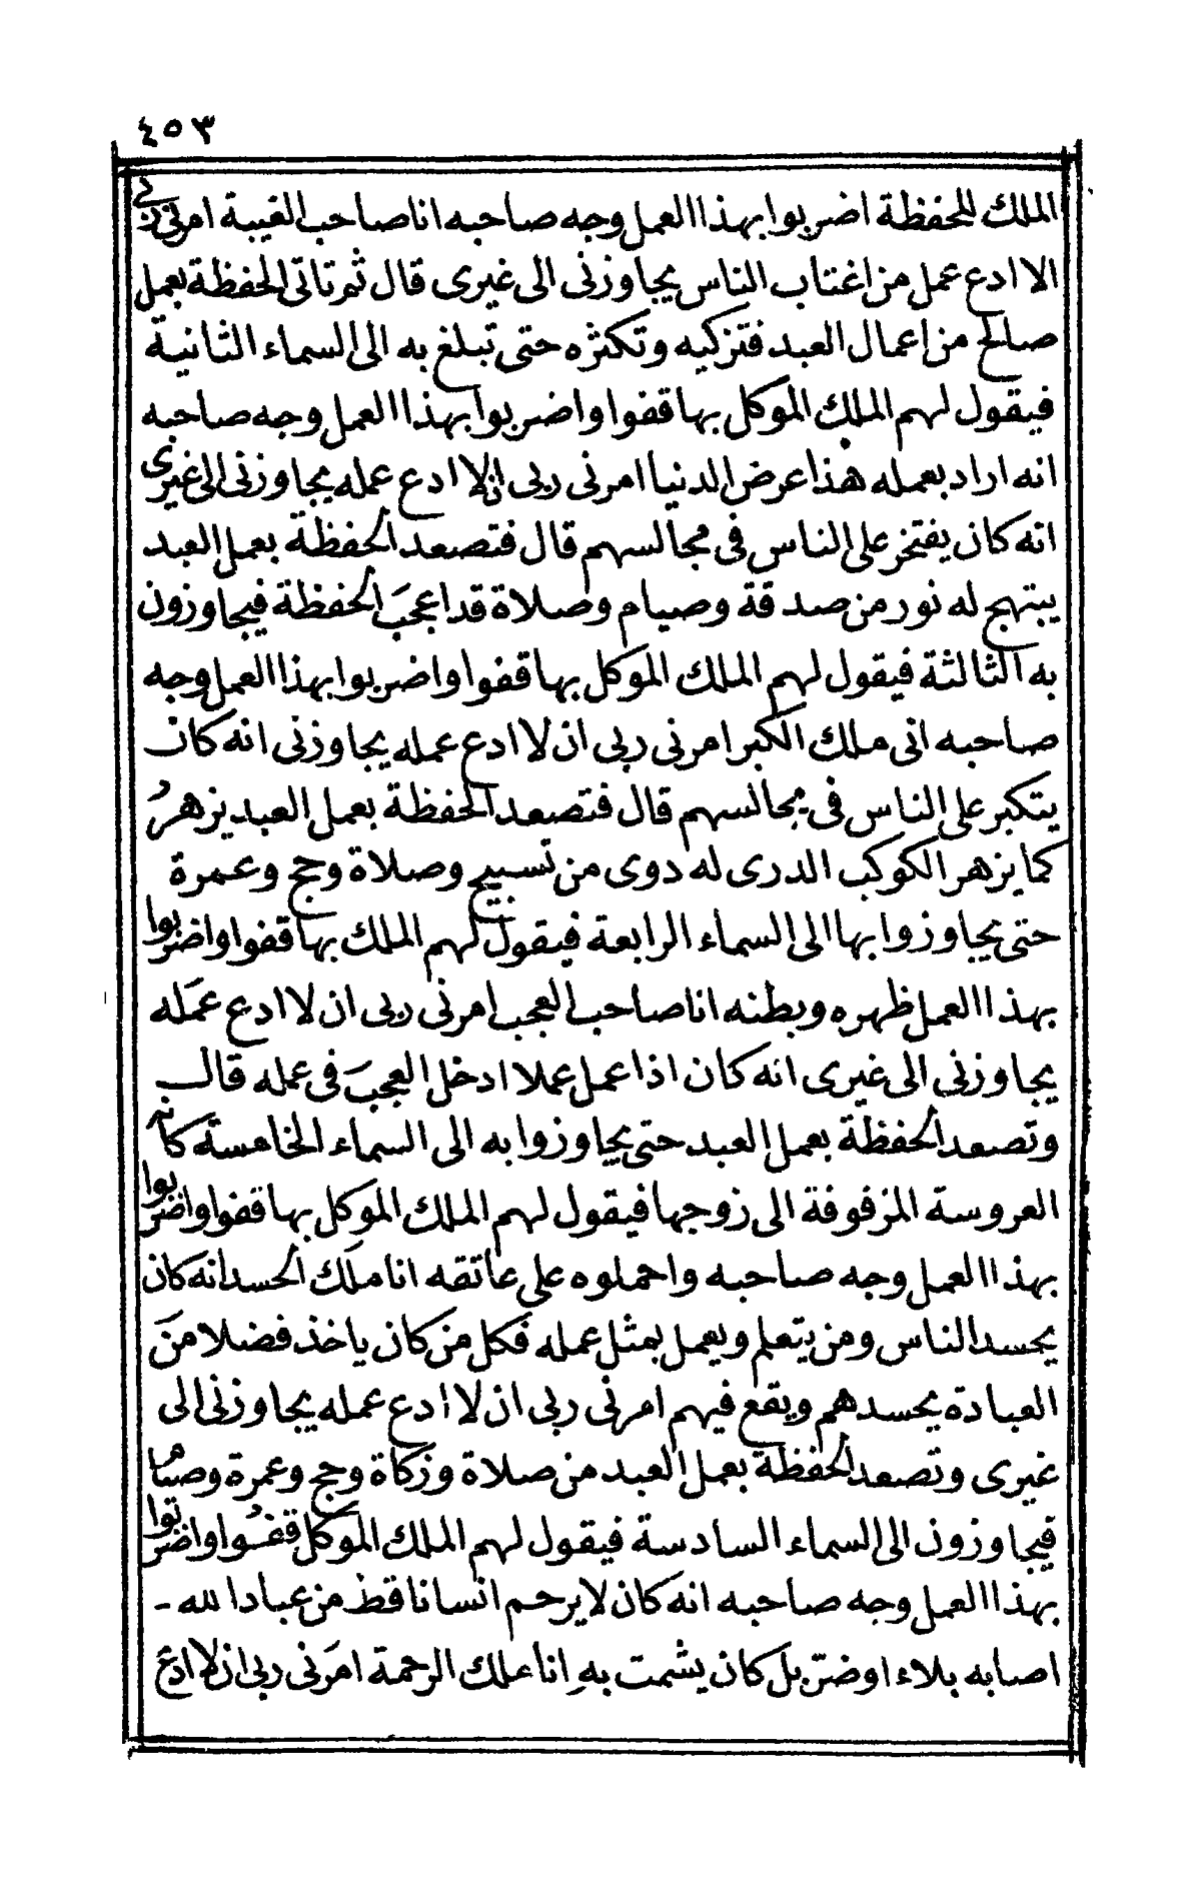 ٤٥٣
الملك للحفظة اضربوا بهذا العمل وجه صاحبه انا صاحب الغيبة امرنى ربى
الا ادع عمل من اغتاب الناس يجاوزنى الى غيرى قال ثم تاتى الحفظة بعمل
صالح من اعمال العبد فتزكيه وتكثره حتى تبلغ به الى السماء الثانية
فيقول لهم الملك الموكل بها قفوا واضربوا بهذا العمل وجه صاحبه
انه اراد بعمله هذا عرض الدنيا امرنى ربى ان لا ادع عمله يجاوزنى الى غيرى
انه كان يفتخر على الناس فى مجالسهم قال فتصعد الحفظة بعمل العبد
يبتهج له نور من صدقة وصيام وصلاة قد اعجبَ الحفظة فيجاوزون
به الثالثة فيقول لهم الملك الموكل بها قفوا واضربوا بهذا العمل وجه
صاحبه انى ملك الكبر امرنى ربى ان لا ادع عمله يجاوزنى انه كان
يتكبر على الناس فى مجالسهم قال فتصعد الحفظة بعمل العبد يزهرُ
كما يزهر الكوكب الدرى له دوى من تسبيح وصلاة وحج وعمرة
حتى يجاوزوا بها الى السماء الرابعة فيقول لهم الملك بها قفوا واضربوا
بهذا العمل ظهره وبطنه انا صاحب العجب امرنى ربى ان لا ادع عمَله
يجاوزنى الى غيرى انه كان اذا عمل عملا ادخل العجبَ فى عمله قال
وتصعد الحفظة بعمل العبد حتى يجاوزوا به الى السماء الخامسة كانه
العروسة المزفوفة الى زوجها فيقول لهم الملك الموكل بها قفوا واضربوا
بهذا العمل وجه صاحبه واحملوه على عاتقه انا ملَك الحسد انه كان
يحسد الناس ومن يتعلم ويعمل بمثل عمله فكل من كان ياخذ فضلا منَ
العبادة يحسدهم ويقع فيهم امرنى ربى ان لا ادع عمله يجاوزنى الى
غيرى وتصعد الحفظة بعمل العبد من صلاة وزكاة وحج وعمرة وصيام
فيجاوزون الى السماء السادسة فيقول لهم الملك الموكل قفُوا واضربوا
بهذا العمل وجه صاحبه انه كان لا يرحم انسانا قط من عباد الله -
اصابه بلاء او ضرّ بل كان يشمت بهِ انا ملك الرحمة امَرنى ربى ان لا ادع